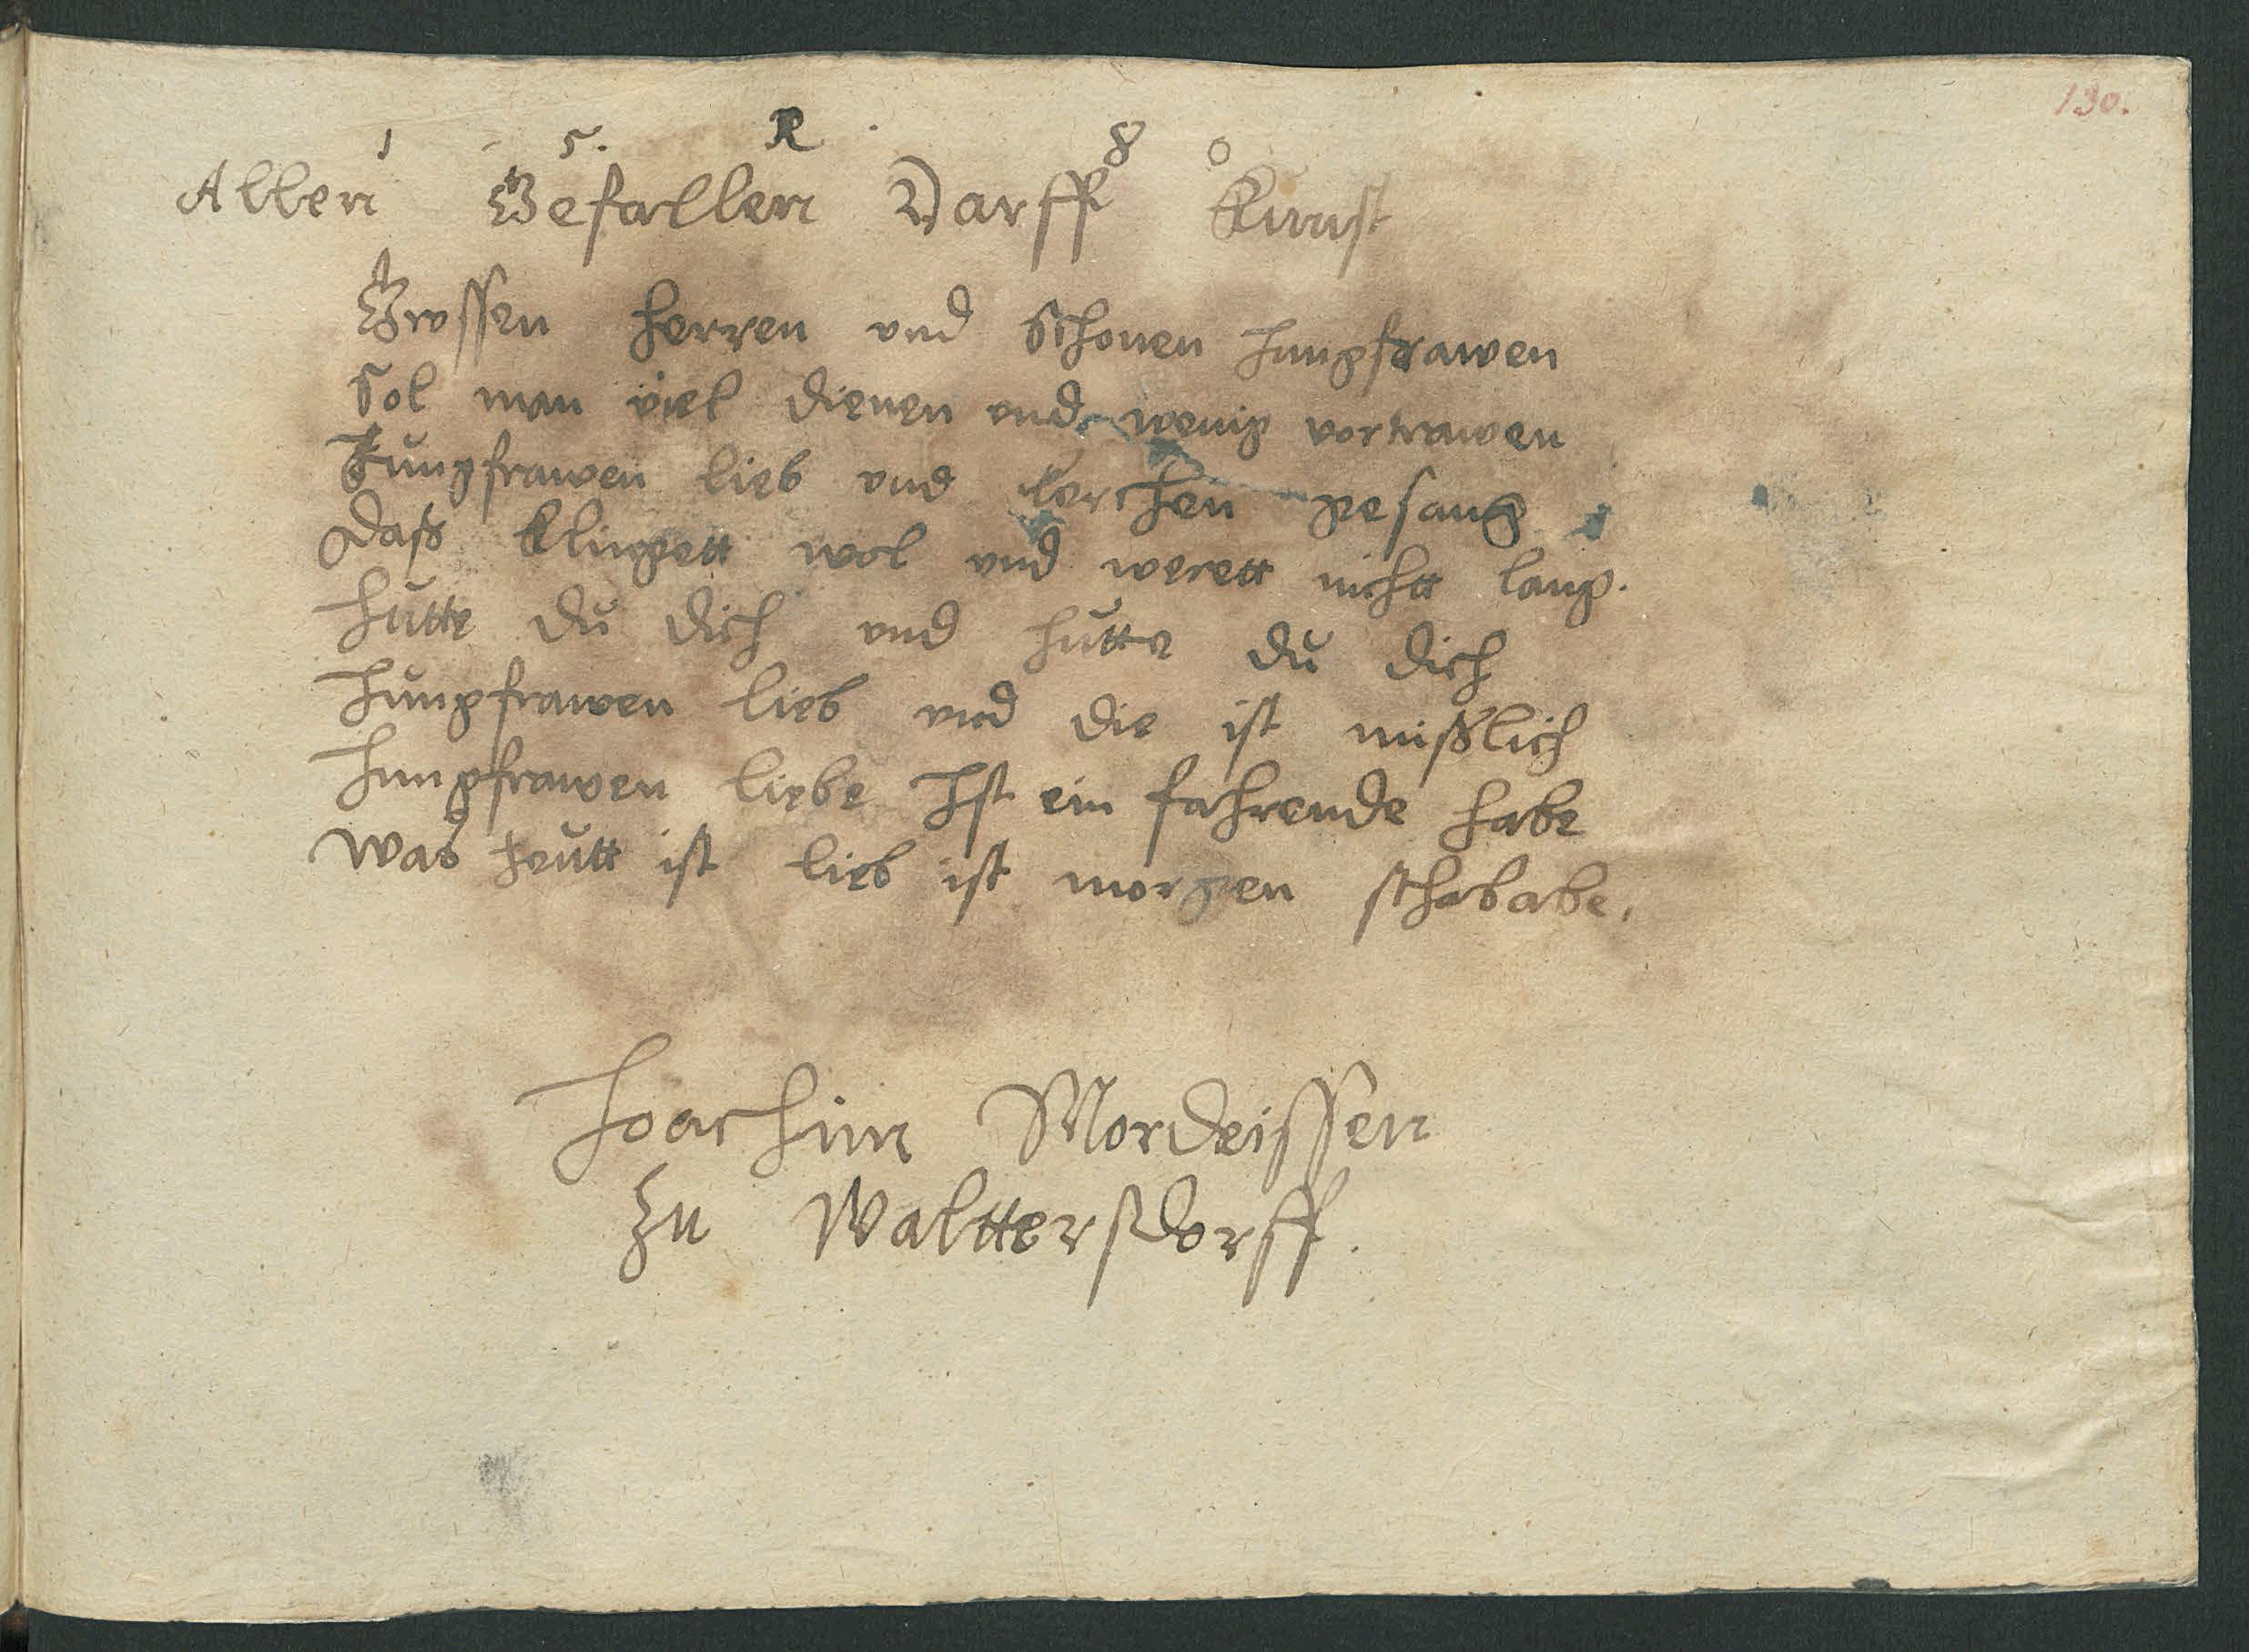 130.
1 5. R 8 0
Allen Gefallen Darff Kunst
Grossen herren vnd Schonen Jungfrawen
Sol man viel dienen vnd wenig vortrawen
Jungfrawen lieb vnd lerchen gesang
Daß klingett wol vnd werett nichtt lang.
Hutte du dich vnd hutte du dich
Jungfrawen lieb vnd die ist mißlich
Jungfrawen liebe Ist ein fahrende habe
Was heutt ist lieb ist morgen schababe.
Joachim Mordeissen
Zu Walttersdorff.